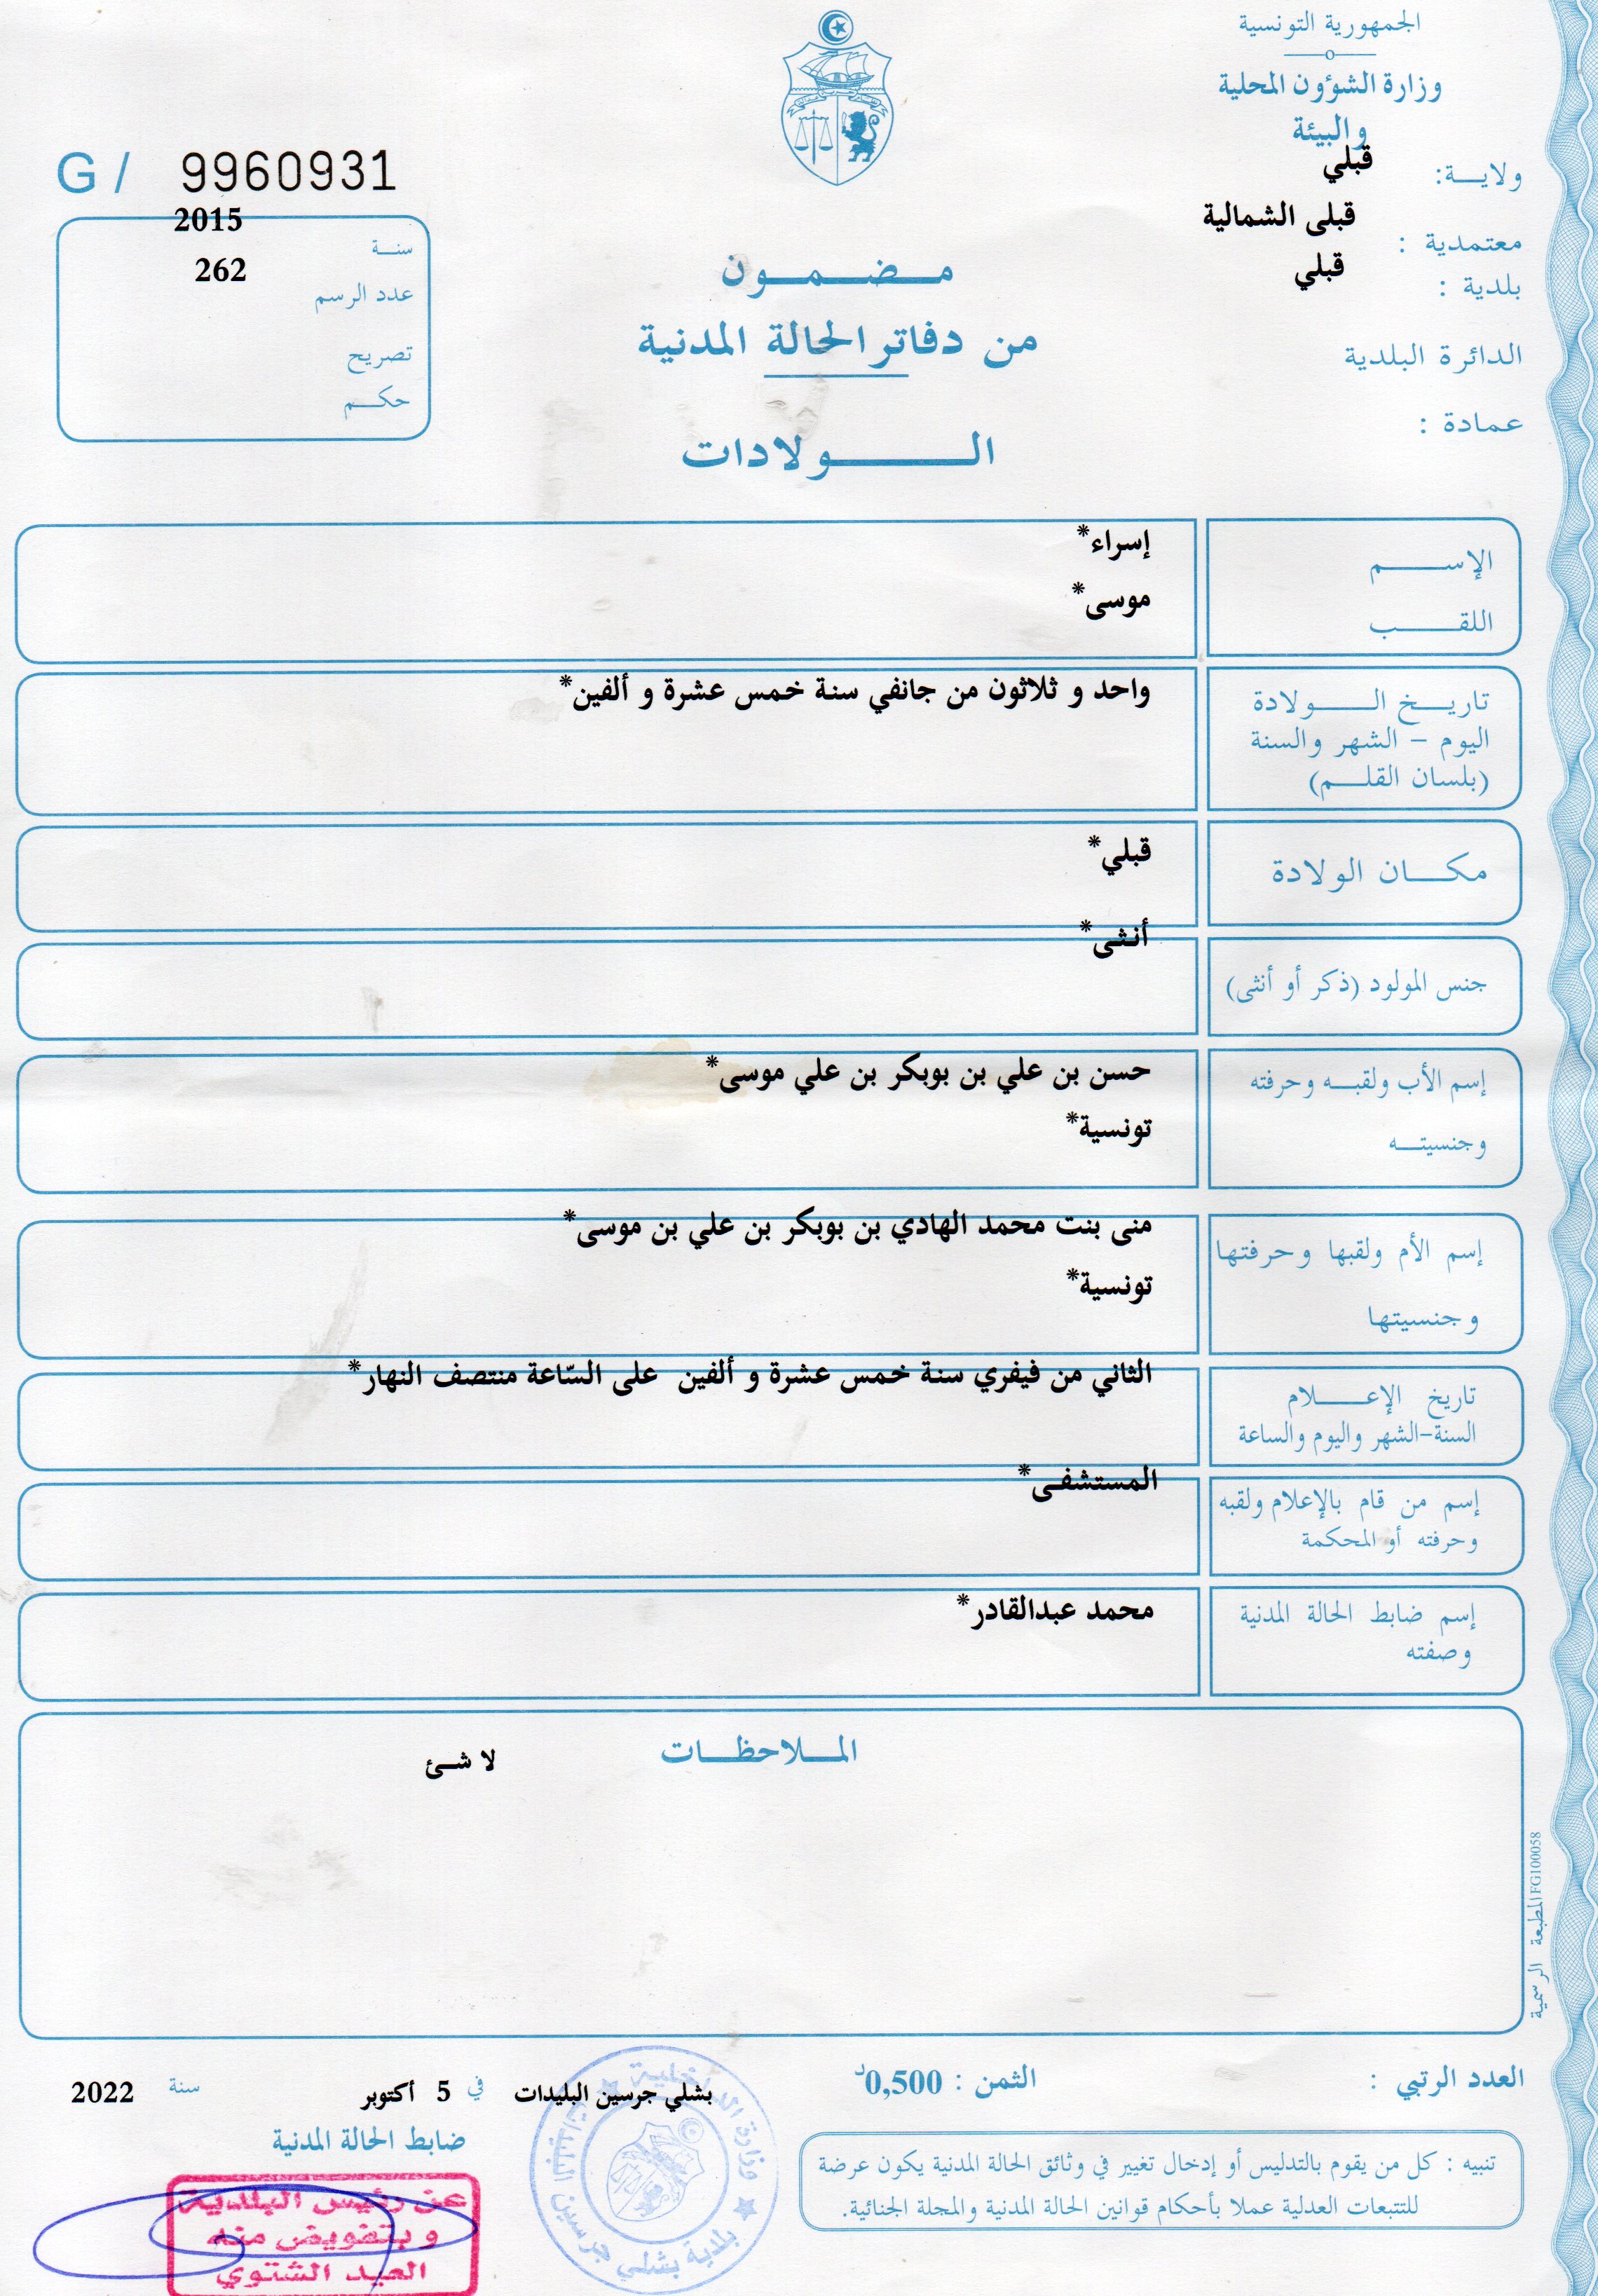 الجمهورية التونسية
وزارة الشؤون المحلية
والبيئة
ولايـــة: قبلي
معتمدية : قبلى الشمالية
بلدية : قبلي
الدائرة البلدية
عمادة :
G / 9960931
سنـــة 2015
عدد الرسم 262
تصريح
حكـــم
مـــضـــمـــون
من دفاتر الحالة المدنية
الـــــولادات
الإســـــم إسراء*
اللقـــــب موسى*
تاريـــخ الـــــولادة واحد و ثلاثون من جانفي سنة خمس عشرة و ألفين*
اليوم – الشهر والسنة
(بلسان القلـــم)
مكـــان الولادة قبلي*
جنس المولود (ذكر أو أنثى) أنثى*
إسم الأب ولقبـــه وحرفته حسن بن علي بن بوبكر بن علي موسى*
وجنسيتـــه تونسية*
إسم الأم ولقبها وحرفتها منى بنت محمد الهادي بن بوبكر بن علي بن موسى*
وجنسيتها تونسية*
تاريخ الإعـــــلام الثاني من فيفري سنة خمس عشرة و ألفين على السّاعة منتصف النهار*
السنة-الشهر واليوم والساعة
إسم من قام بالإعلام ولقبه المستشفى*
وحرفته أو المحكمة
إسم ضابط الحالة المدنية محمد عبدالقادر*
وصفته
المـــلاحظـــات
لا شئ
المطبعة الرسمية FG100058
العدد الرتبي :
الثمن : 0,500د
بشلي جرسين البليدات في 5 أكتوبر سنة 2022
ضابط الحالة المدنية
تنبيه : كل من يقوم بالتدليس أو إدخال تغيير في وثائق الحالة المدنية يكون عرضة
للتتبعات العدلية عملا بأحكام قوانين الحالة المدنية والمجلة الجنائية.
عن رئيس البلدية
و بتفويض منه
العيد الشتوي
وزارة الداخلية
بلدية بشلي جرسين البليدات